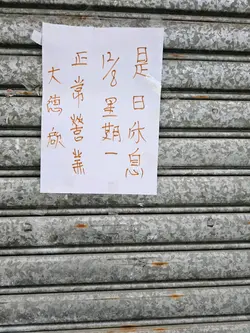 是日休息
12/8星期一
正常營業
大德啟